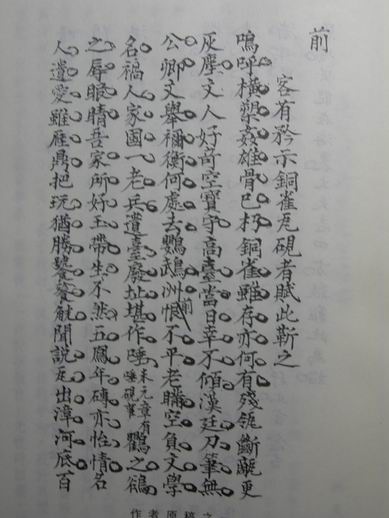 前
客有矜示銅雀瓦硯者賦此靳之
嗚呼橫槊姦雄骨已朽銅雀雖存亦何有殘瓴斷甋更
灰塵文人好奇空寶守高臺當日幸不傾漢廷刀筆無
公卿文舉禰衡何處去鸚鵡洲前恨不平老瞞空負文學
名禍人家國一老兵遺臺廢址堪作唾米元章有唾硯事鸜之鵒
之辱眼睛吾家所好玉帶生不然五鳳年磚亦怡情名
人遺愛雖雁鼎把玩猶勝饕餮觥聞說瓦出漳河底百
作者原稿之